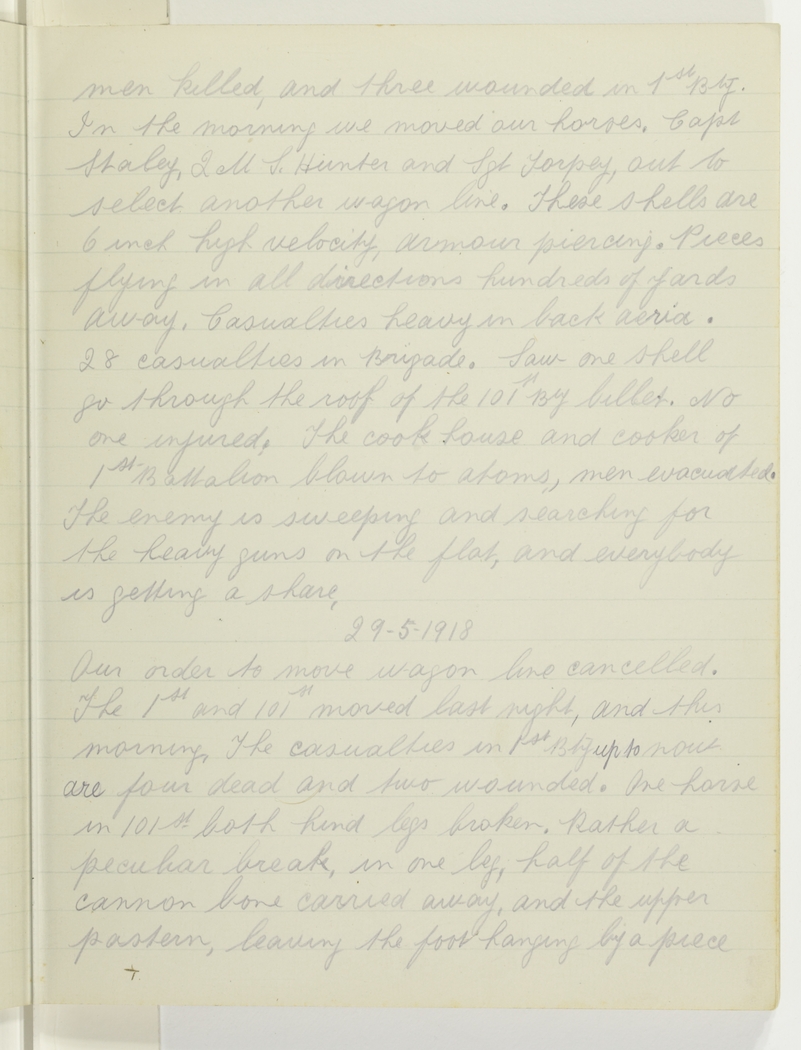 men killed, and three wounded in 1st Bty.
In the morning we moved our horses. Capt
Staley, Q M S. Hunter and Sgt Torpey, out to
select another wagon line. These shells are
6 inch high velocity, armour piercing. Pieces
flying in all directions hundreds of yards
away. Casualties heavy in back aeria.
28 casualties in Brigade. Saw one shell
go through the roof of the 101st Bty billet. No
one injured. The cook house and cooker of
1st Battalion blown to atoms, men evacuated.
The enemy is sweeping and searching for
the heavy guns on the flat, and everybody
is getting a share,
29-5-1918
Our order to move wagon line cancelled.
The 1st and 101st moved last night, and this
morning, The casualties in 1st Bty up to now
are four dead and two wounded. One horse
in 101st both hind legs broken. Rather a
peculiar break, in one leg, half of the
cannon bone carried away, and the upper
pastern, leaving the foot hanging by a piece
+